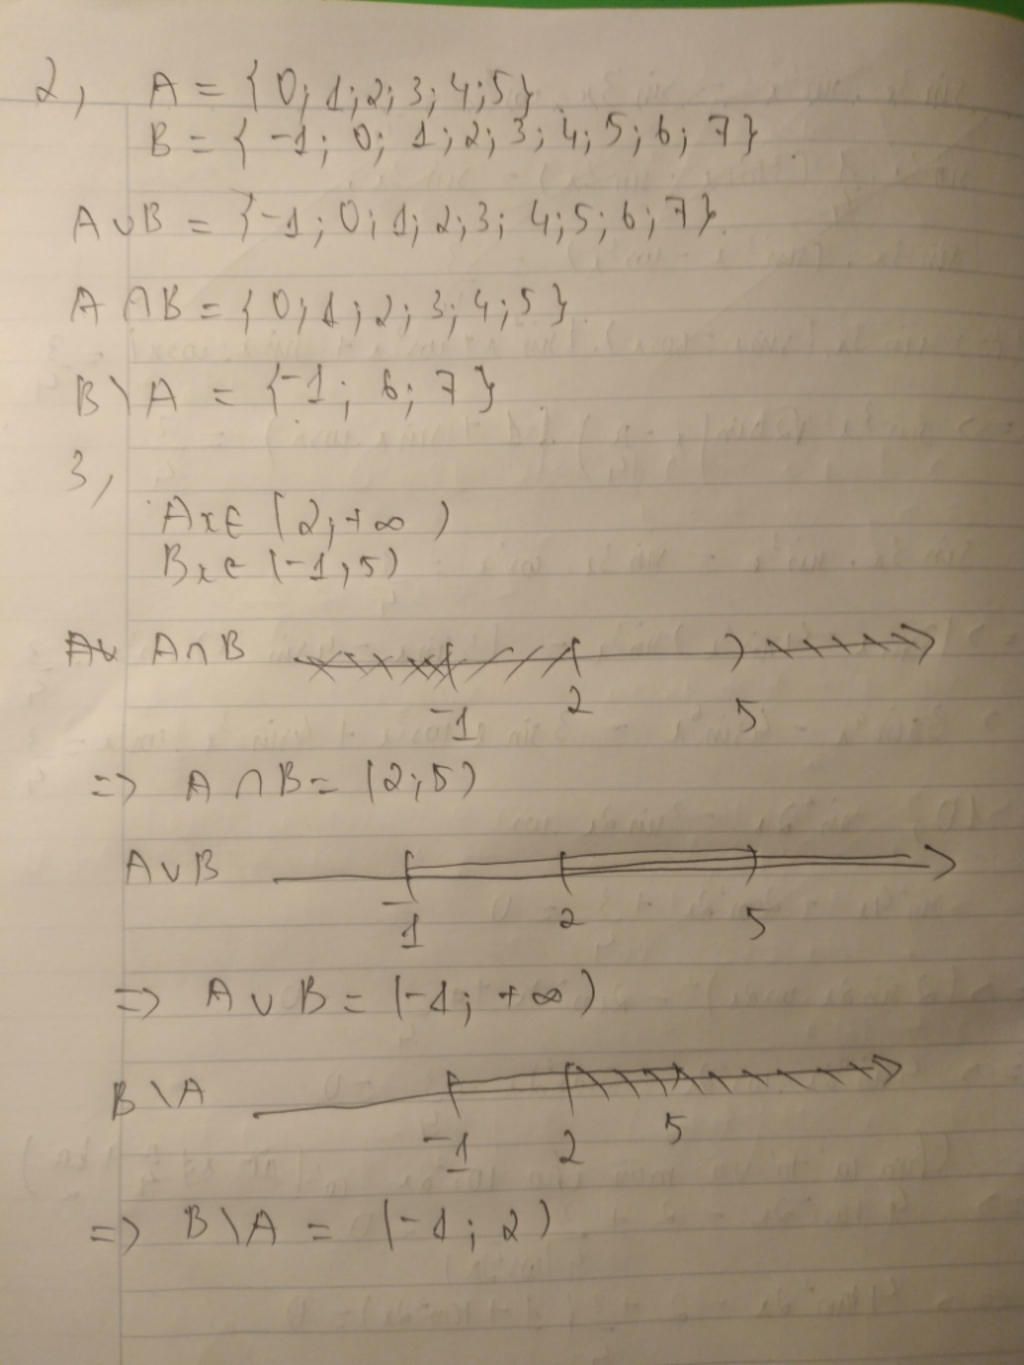 2, A = { 0; 1; 2; 3; 4; 5}
B = { -1; 0; 1; 2; 3; 4; 5; 6; 7}
A∪B = {-1; 0; 1; 2; 3; 4; 5; 6; 7}.
A ∩B = { 0; 1; 2; 3; 4; 5}.
B \ A = {-1; 6; 7}
3,
A x∈ [2; +∞ )
B x∈ (-1; 5)
A∪ A∩B
-1 2 5
=> A ∩B = [2; 5)
A∪B
-1 2 5
=> A ∪ B = (-1; +∞)
B \ A
-1 2 5
=> B \ A = (-1; 2)